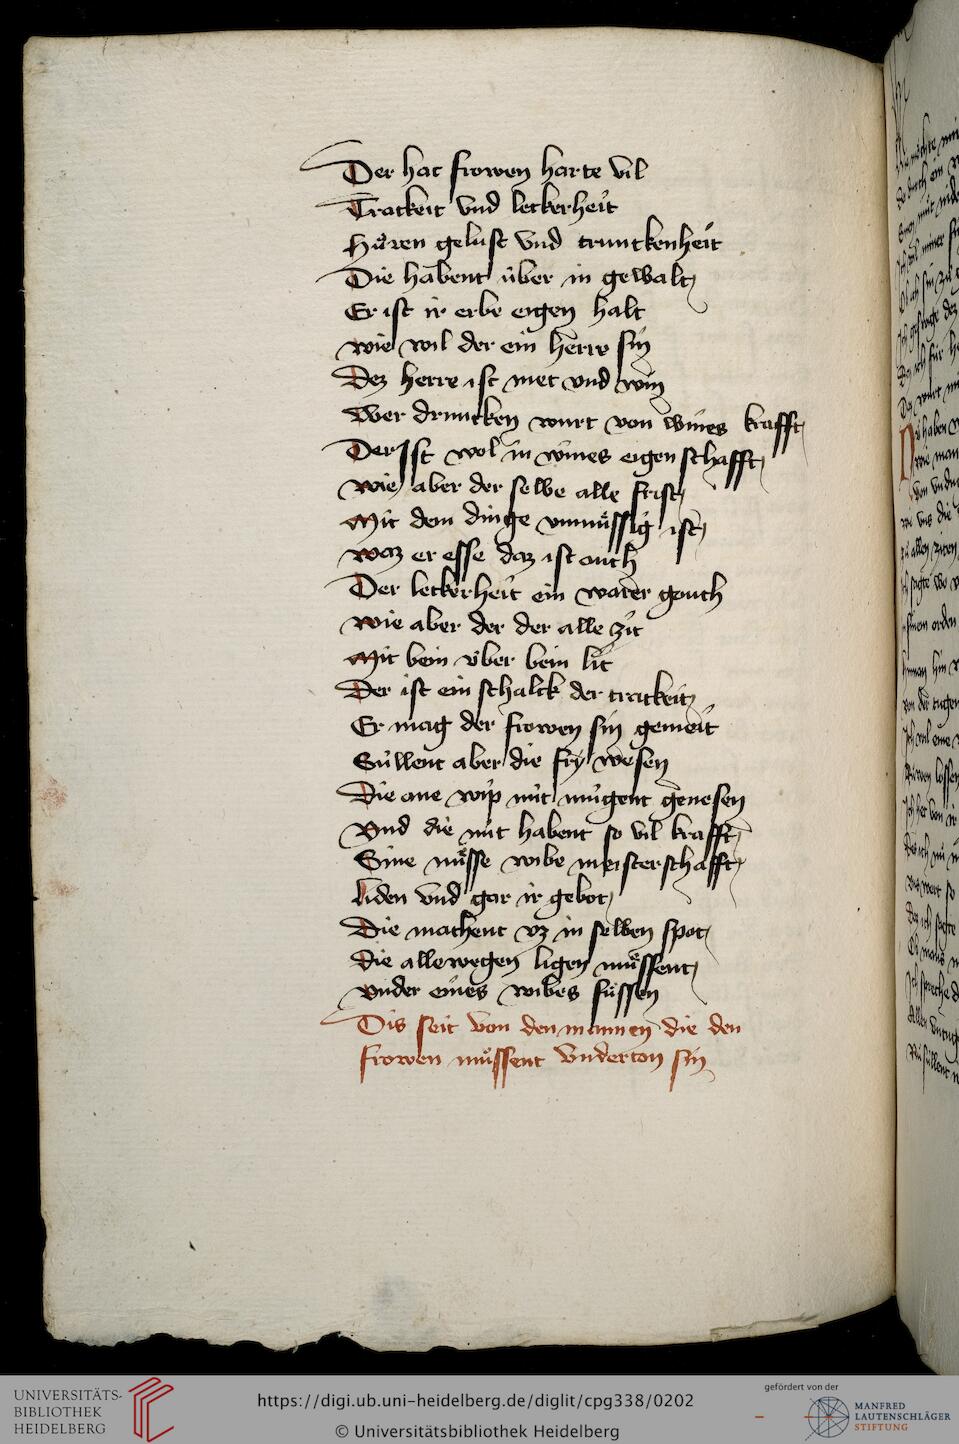 Der hat frowen harte vil
Trackeit vnd leckerheit
Hůren gelust vnd trunckenheit
Die habent über in gewalt
Er ist ir erbe eigen halt
wie wil der ein herre sin
Dez herre ist met vnd win
Wer druncken wurt von wines krafft
Der Ist wol in wines eigenschafft
wie aber der selbe alle frist
Mit dem dinge vnmůssig ist
waz er esse daz ist ouch
Der leckerheit ein warer gouch
wie aber der der alle zit
Mit bein über bein lit
Der ist ein schalck der trackeit
Er mag der frowen sin gemeit
Sullent aber die fry wesen
Die one wip nüt mügent genesen
Vnd die nüt habent so vil krafft
Sine můsse wibe meisterschafft
Liden vnd gar ir gebot
Die machent vz in selben spot
Die allewegen ligen můssent
vnder eines wibes fůssen
Dis seit von den mannen die den
frowen můssent vnderton sin
UNIVERSITÄTS-
BIBLIOTHEK
HEIDELBERG
https://digi.ub.uni-heidelberg.de/diglit/cpg338/0202
© Universitätsbibliothek Heidelberg
gefördert von der
MANFRED
LAUTENSCHLÄGER
STIFTUNG